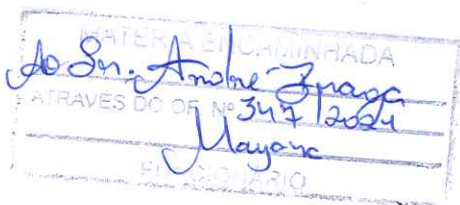 MATÉRIA ENCAMINHADA
Ao Sr. André Fraga
ATRAVÉS DO OF. Nº 347/2024
Mayara
FUNCIONÁRIO